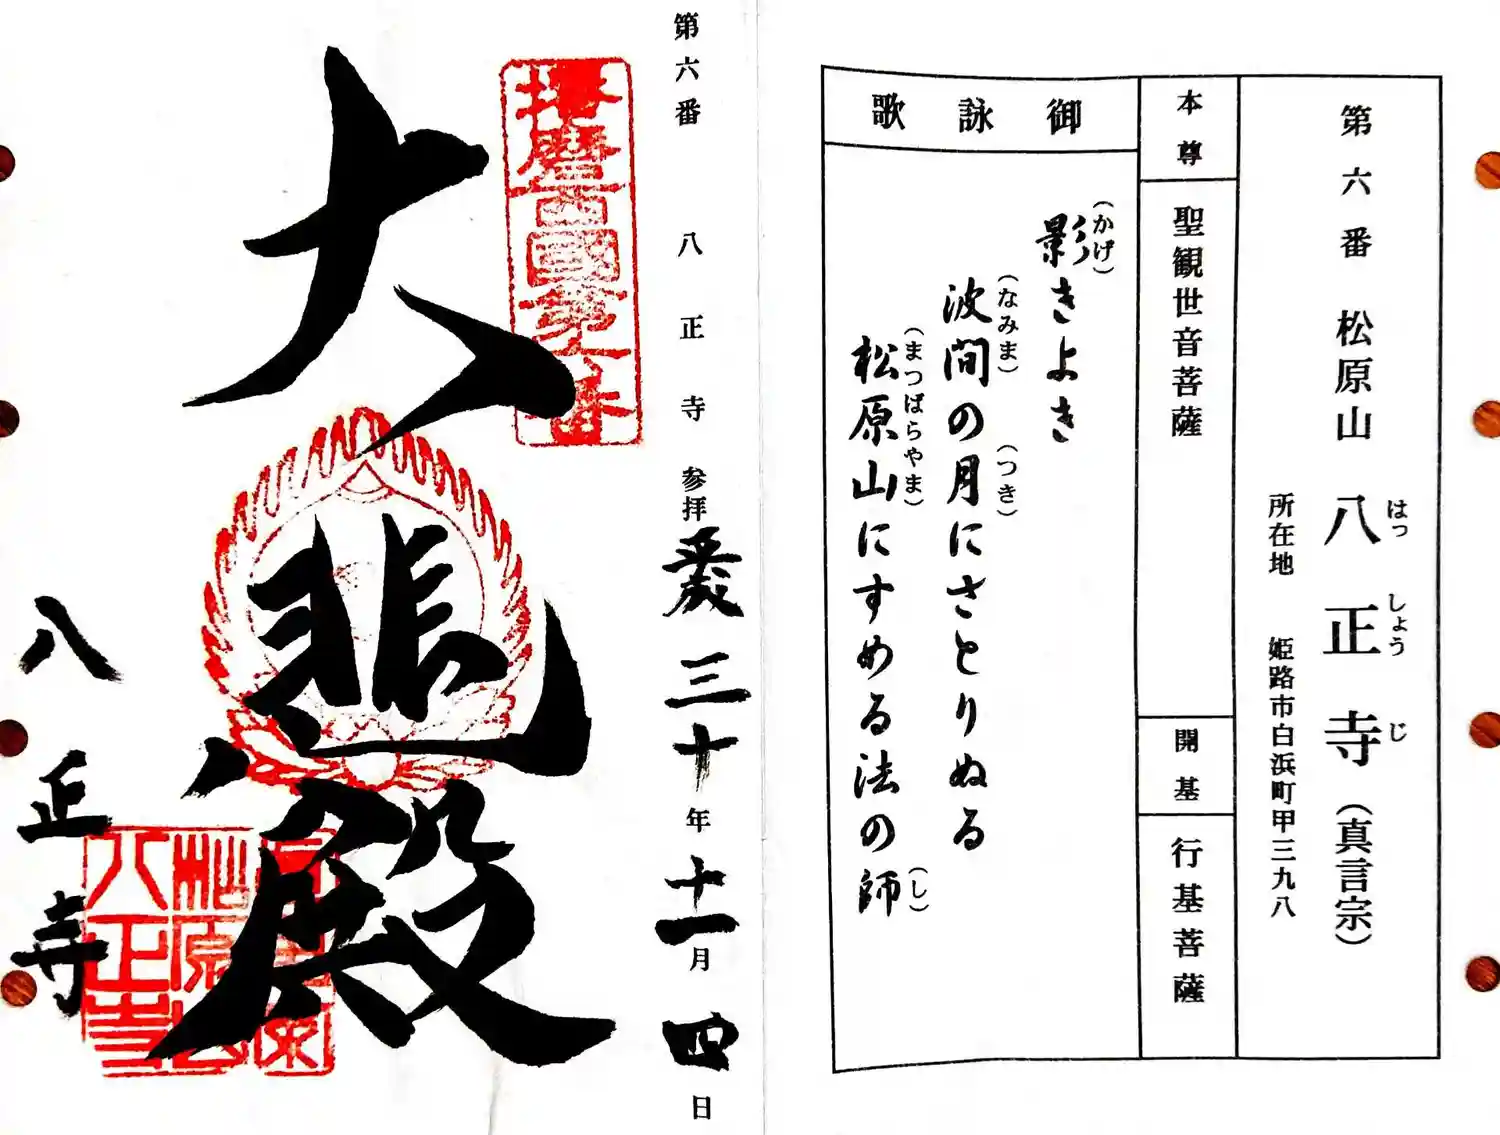 第六番 松原山 八正寺（真言宗）
はっしょうじ
所在地 姫路市白浜町甲三九八
本尊
聖観世音菩薩
開基
行基菩薩
御詠歌
影きよき
（かげ）
波間の月にさとりぬる
（なみま）（つき）
松原山にすめる法の師
（まつばらやま）（し）
第六番 八正寺 参拝
平成三十年十一月四日
播磨西國第六番
大悲殿
八正寺